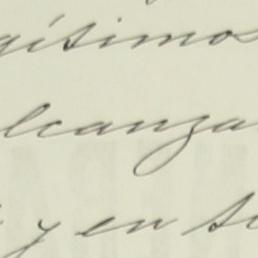 gísimos
lcanza
y en s